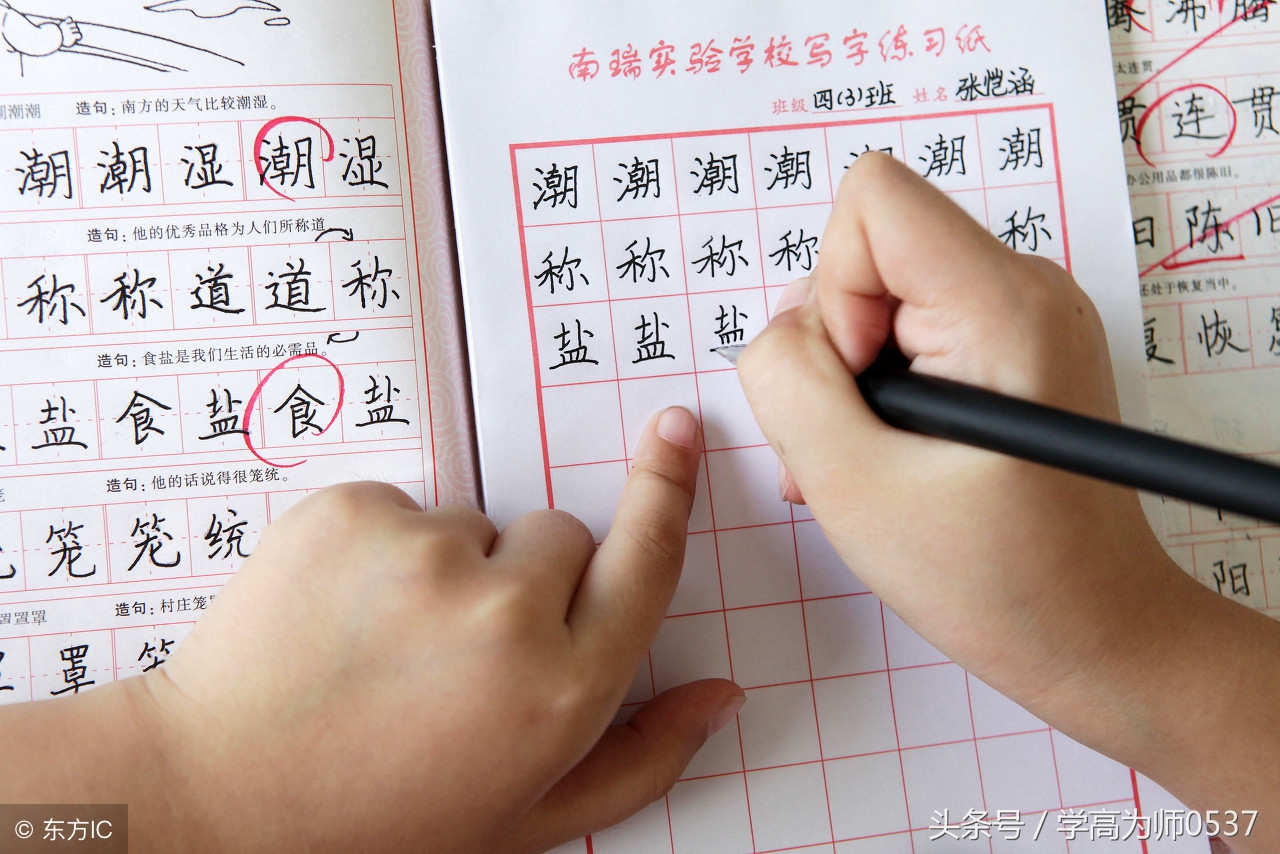 潮潮 造句：南方的天气比较潮湿。
潮潮湿潮湿
造句：他的优秀品格为人们所称道
称称道道称
造句：食盐是我们生活的必需品。
盐食盐食盐
造句：他的话说得很笼统。
笼笼统
置置罩
造句：村庄笼
罩笼
南瑞实验学校写字练习纸
班级 四(3)班 姓名 张恺涵
潮潮潮潮潮潮潮
称称称称称
盐盐盐
腾沸腾
太连贯
贯连贯
办公用品都很陈旧。
旧陈旧
还处于恢复当中。
复恢复
阳
© 东方IC
头条号 / 学高为师0537